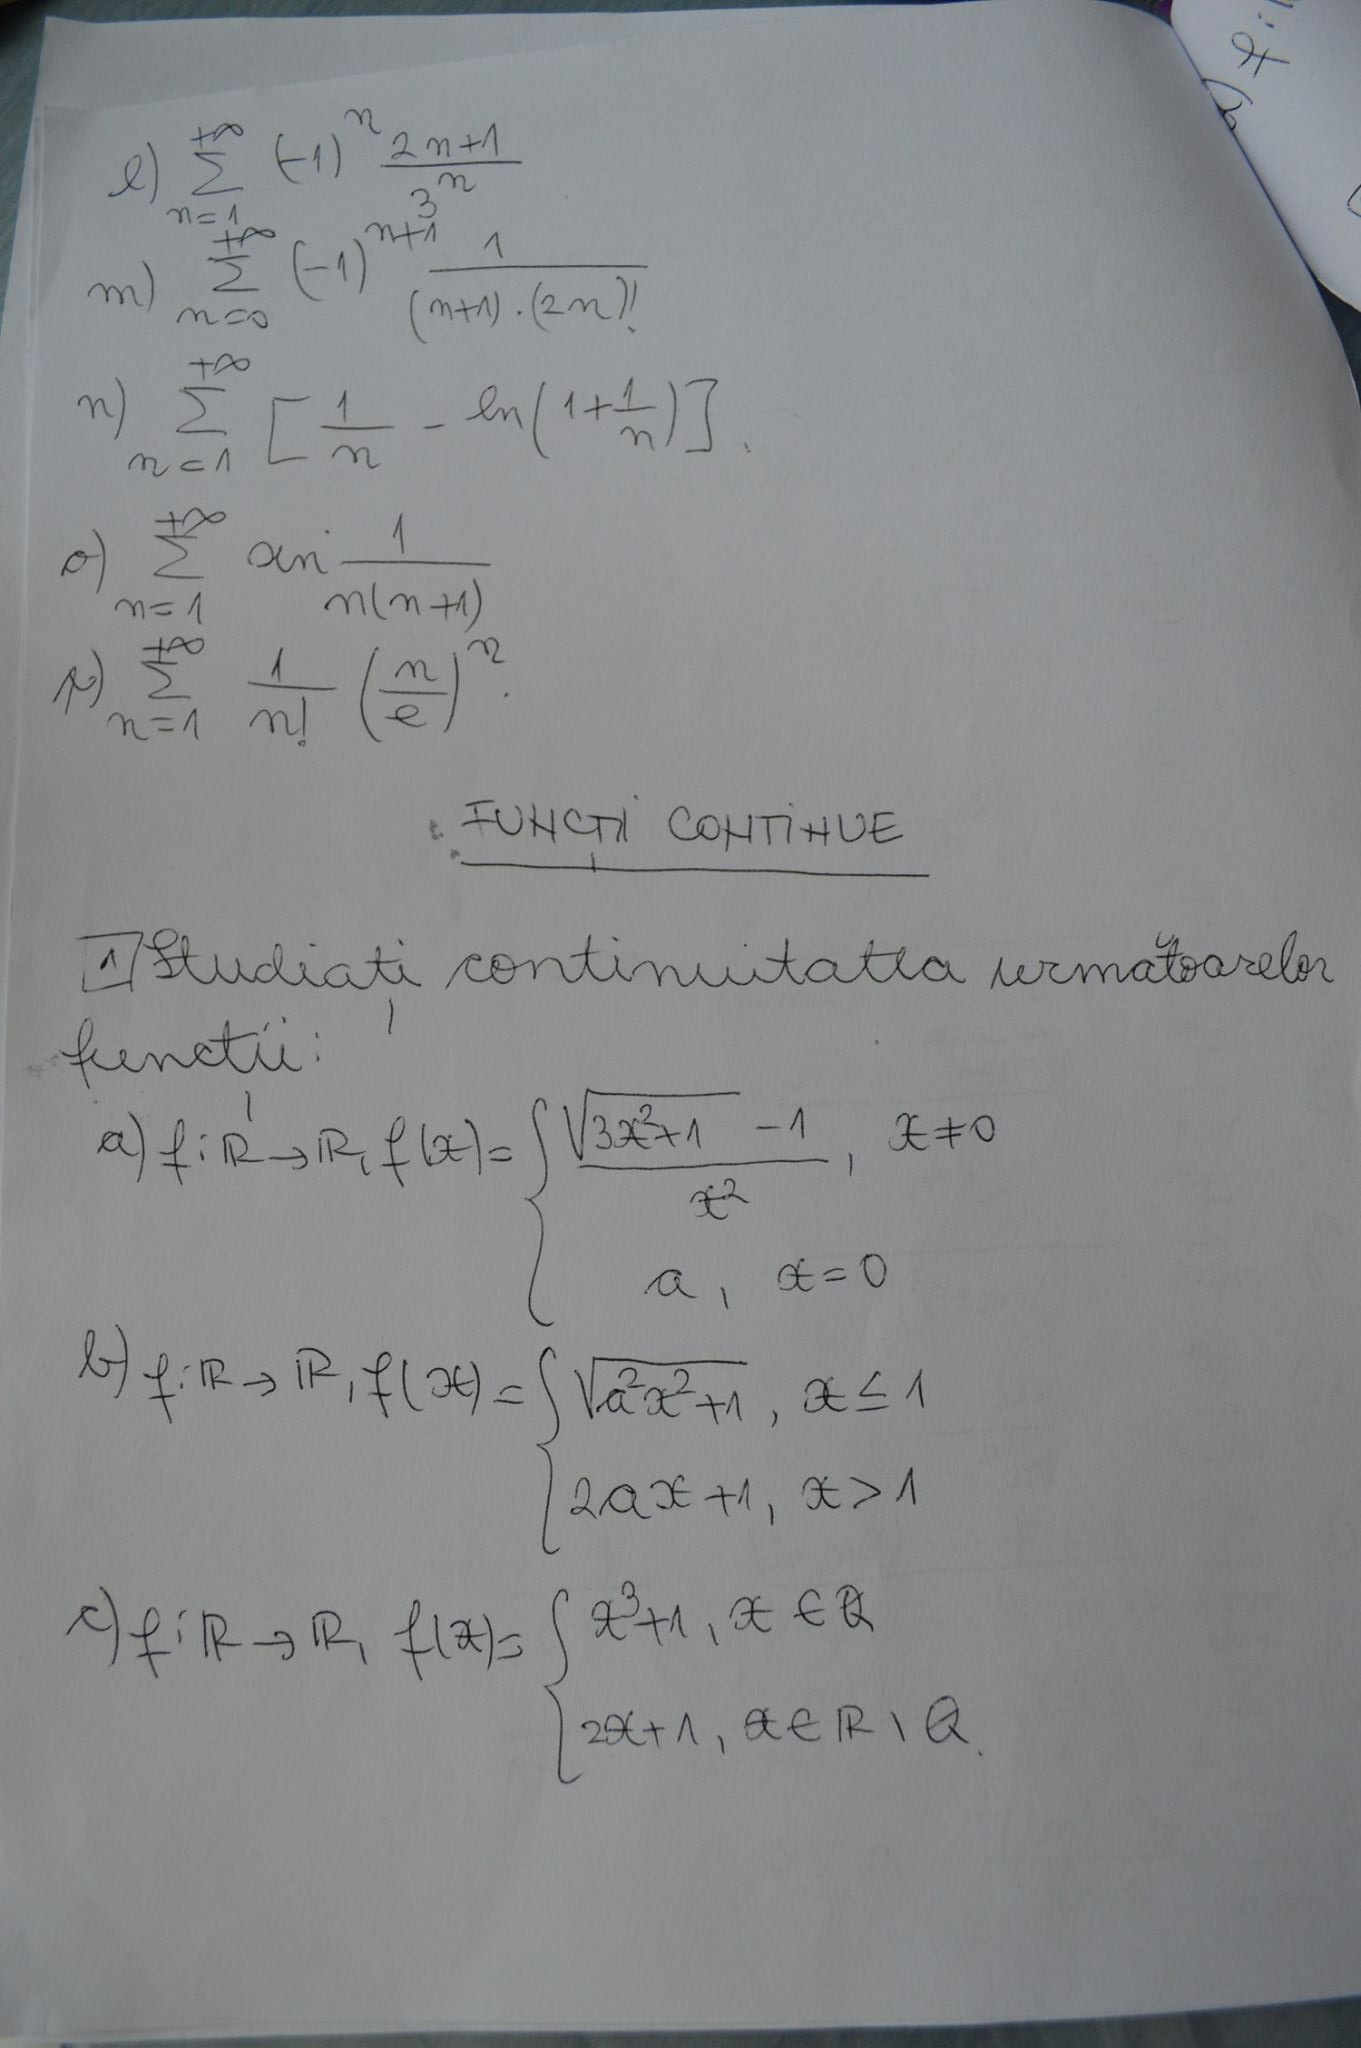 l) $\sum_{n=1}^{+\infty} (-1)^n \frac{2n+1}{3^n}$
m) $\sum_{n=0}^{+\infty} (-1)^{n+1} \frac{1}{(n+1) \cdot (2n)!}$
n) $\sum_{n=1}^{+\infty} \left[ \frac{1}{n} - \ln\left(1+\frac{1}{n}\right) \right].$
o) $\sum_{n=1}^{+\infty} \sin \frac{1}{n(n+1)}$
p) $\sum_{n=1}^{+\infty} \frac{1}{n!} \left(\frac{n}{e}\right)^n.$
FUNCȚII CONTINUE
1 Studiați continuitatea următoarelor
funcții:
a) $f: \mathbb{R} \to \mathbb{R}, f(x) = \begin{cases} \frac{\sqrt{3x^2+1} - 1}{x^2}, & x \neq 0 \\ a, & x = 0 \end{cases}$
b) $f: \mathbb{R} \to \mathbb{R}, f(x) = \begin{cases} \sqrt{a^2x^2+1}, & x \leq 1 \\ 2ax+1, & x > 1 \end{cases}$
c) $f: \mathbb{R} \to \mathbb{R}, f(x) = \begin{cases} x^3+1, & x \in \mathbb{Q} \\ 2x+1, & x \in \mathbb{R} \setminus \mathbb{Q}. \end{cases}$